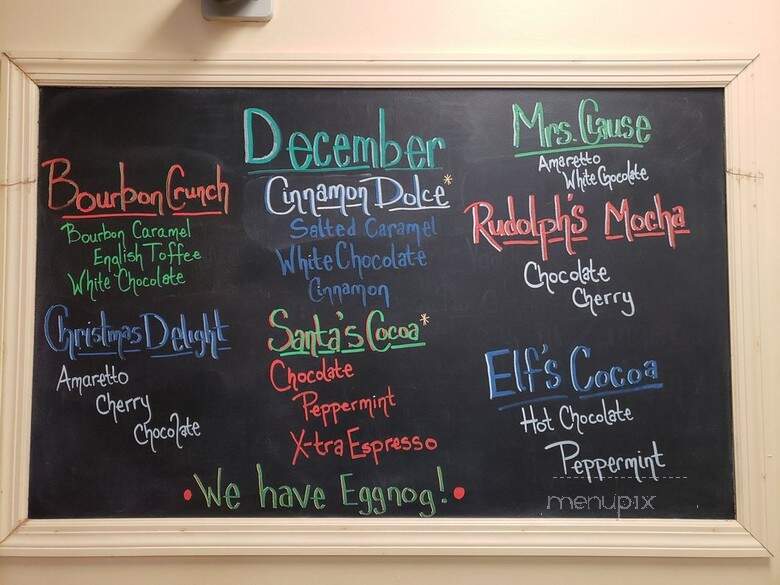 December
Bourbon Crunch
Bourbon Caramel
English Toffee
White Chocolate
Christmas Delight
Amaretto
Cherry
Chocolate
Cinnamon Dolce*
Salted Caramel
White Chocolate
Cinnamon
Santa's Cocoa*
Chocolate
Peppermint
X-tra Espresso
Mrs. Clause
Amaretto
White Chocolate
Rudolph's Mocha
Chocolate
Cherry
Elf's Cocoa
Hot Chocolate
Peppermint
• We have Eggnog! •
menupix